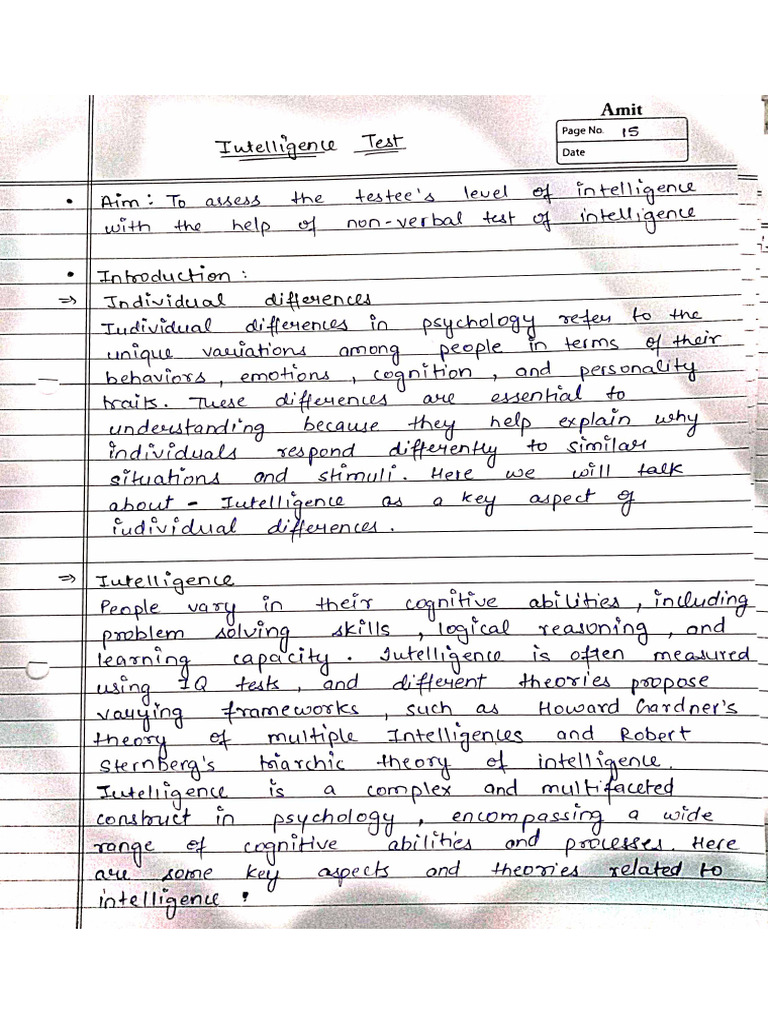 Amit
Page No. 15
Date
Intelligence Test
• Aim: To assess the testee's level of intelligence
with the help of non-verbal test of intelligence
• Introduction:
⇒ Individual differences
Individual differences in psychology refer to the
unique variations among people in terms of their
behaviors, emotions, cognition, and personality
traits. These differences are essential to
understanding because they help explain why
individuals respond differently to similar
situations and stimuli. Here we will talk
about - Intelligence as a key aspect of
individual differences.
⇒ Intelligence
People vary in their cognitive abilities, including
problem solving skills, logical reasoning, and
learning capacity. Intelligence is often measured
using IQ tests, and different theories propose
varying frameworks, such as Howard Gardner's
theory of multiple Intelligences and Robert
Sternberg's triarchic theory of intelligence.
Intelligence is a complex and multifaceted
construct in psychology, encompassing a wide
range of cognitive abilities and processes. Here
are some key aspects and theories related to
intelligence :